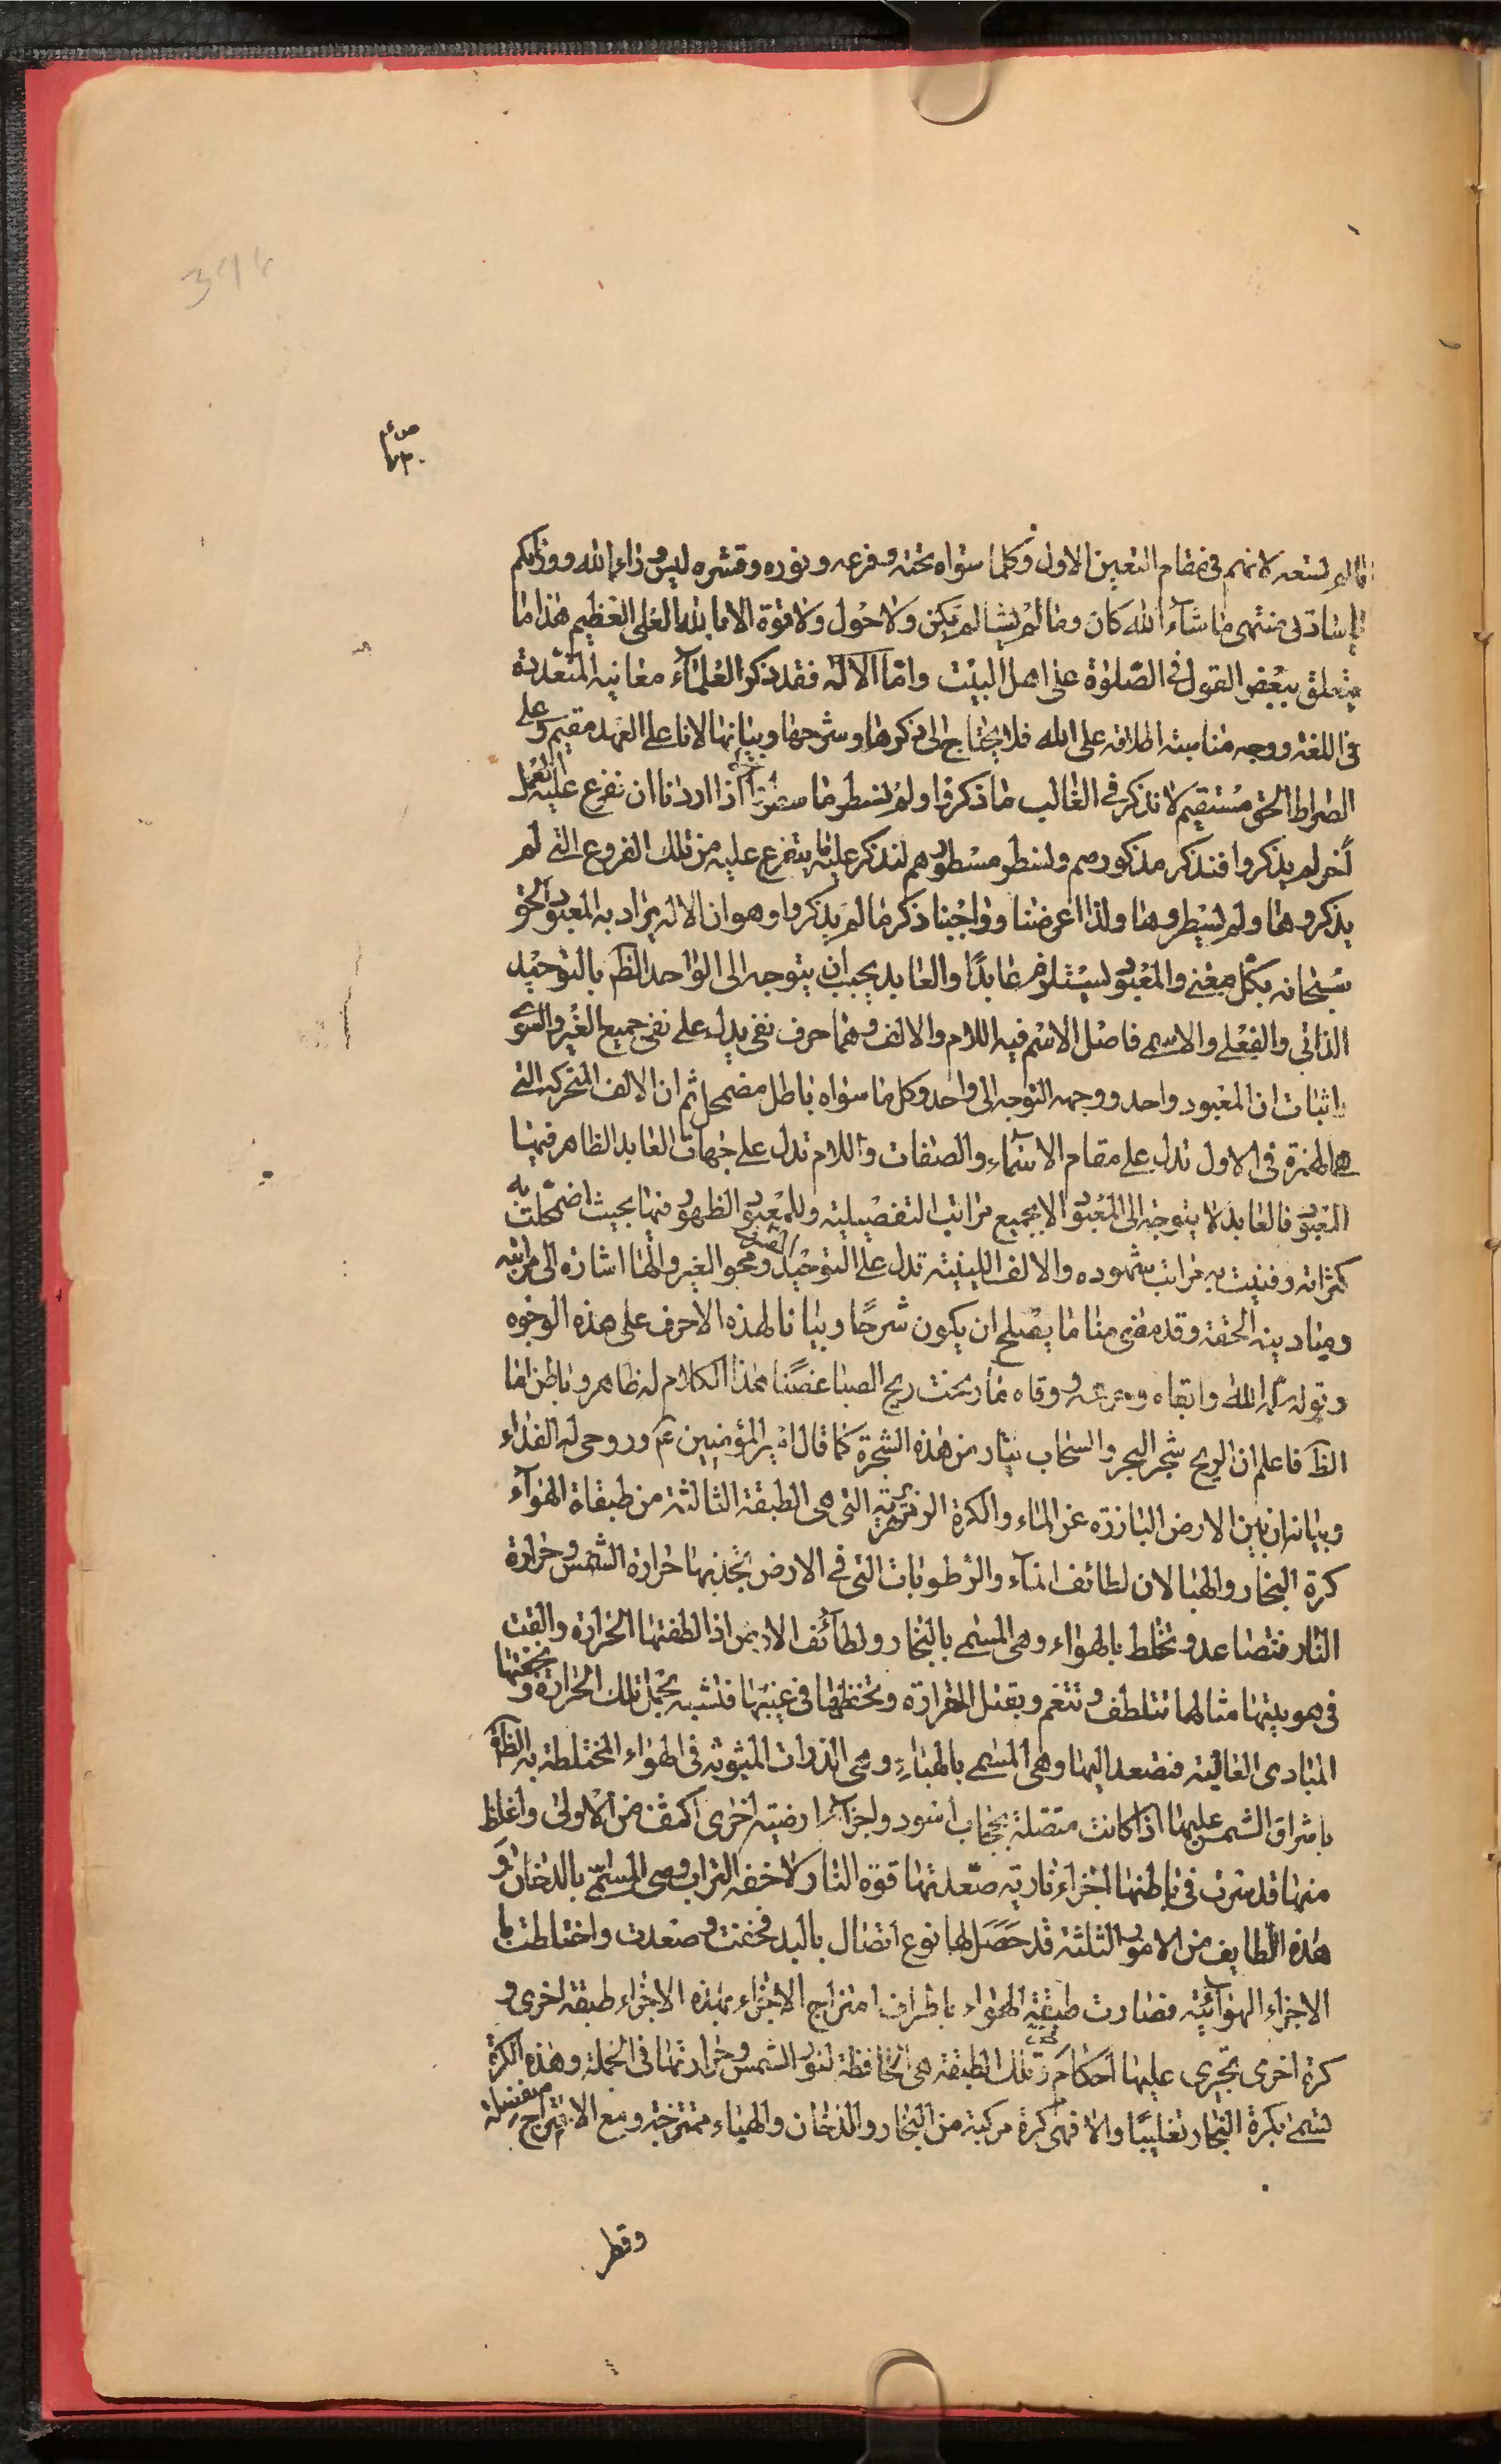 ما لم تسعه لانهم في مقام التعين الاول وكلما سواه تحته وفرعه ونوره وقشره ليس وراء الله ووراءكم
يا سادتى منتهى ما شاء الله كان وما لم يشا لم يكن ولا حول ولا قوة الا بالله العلى العظيم هذا ما
يتعلق ببعض القول في الصلوة على اهل البيت واما الآل فقد ذكر العلماء معانيه المتعددة
في اللغة ووجه مناسبة اطلاقه على الله فلا يحتاج الى ذكرها وشرحها وبيانها لانا على العهد مقيم وعلى
الصراط الحق مستقيم لا نذكر في الغالب ما ذكروا ولم نسطر ما سطروا الا اذا اردنا ان نفرع عليه
آخر لم يذكروا فنذكر مذكورهم ونسطر مسطورهم لنذكر عليه ما يتفرع عليه من تلك الفروع التي لم
يذكروها ولم يسطروها ولذا اعرضنا وواجبنا ذكر ما لم يذكروا وهو ان الاله يراد به المعبود الحق
سبحانه بكل معنى والمعبود يستلزم عابدا والعابد يجب ان يتوجه الى الواحد الظم بالتوحيد
الذاتى والفعلى والاسمى فاصل الاسم فيه اللام والالف وهما حرف نفى يدل على نفى جميع الغير والسوى
باثبات ان المعبود واحد ووجهه التوجه الى واحد وكل ما سواه باطل مضمحل ثم ان الالف المتحركة التي
هي الهمزة في الاول تدل على مقام الاسماء والصفات واللام تدل على جهات العابد الظاهر فيها
المعبود فالعابد لا يتوجه الى المعبود الا بجميع مراتبه التفصيلية وللمعبود الظهور فيها بحيث اضمحلت به
كثراته وفنيت به مراتب شهوده والالف اللينية تدل على التوحيد الصرف ومحو الغير والهاء اشارة الى مراتبه
ومبادينه الحقة وقد مضى منا ما يصلح ان يكون شرحا وبيانا لهذه الاحرف على هذه الوجوه
وقوله سلمه الله وابقاه ووقاه ما ريحت ريح الصبا غصنا هذا الكلام له ظاهر وباطن اما
الظ فاعلم ان الريح شجر البحر والسحاب ثمار من هذه الشجرة كما قال امير المؤمنين عم وروحى له الفداء
وبيانه ان بين الارض البارزة عن الماء والكرة الزمهريرية التي هي الطبقة الثالثة من طبقات الهوآء
كرة البخار والهبا لان لطائف المآء والرطوبات التي في الارض تجذبها حرارة الشمس وحرارة
النار فتصاعد وتختلط بالهواء وهي المسمى بالبخار ولطآئف الارض اذا لطفتها الحرارة والقت
في هويتها مثالها تتلطف وتنعم ويقبل الحرارة وتحفظها في غيبها فتشبه بحمل تلك الحرارة وبخفتها
المبادى العالية فتصعد اليها وهي المسمى بالهباء وهي الذرات المبثوثة في الهواء المختلطة به الظاهرة
باشراق الشمس عليها اذا كانت متصلة بحجاب اسود واجزآء ارضية اخرى اكثف من الاولى واغلظ
منها قد سرت في باطنها اجزاء نارية صعدتها قوة النار لا خفة التراب وهي المسمى بالدخان و
هذه اللطايف من الامور الثلثة قد حصل لها نوع اتصال باليد فخفت وصعدت واختلطت بها
الاجزاء الهوآئية فصارت طبقة الهواء باطراف امتزاج الاجزاء بهذه الاجزاء طبقة اخرى و
كرة اخرى تجرى عليها احكام وتلك الطبقة هي الحافظة لنور الشمس وحرارتها في الجملة وهذه الكرة
تسمى بكرة البخار تغليبا والا فهي كرة مركبة من البخار والدخان والهباء ممتزجة ومع الامتزاج منفصلة
وقطر